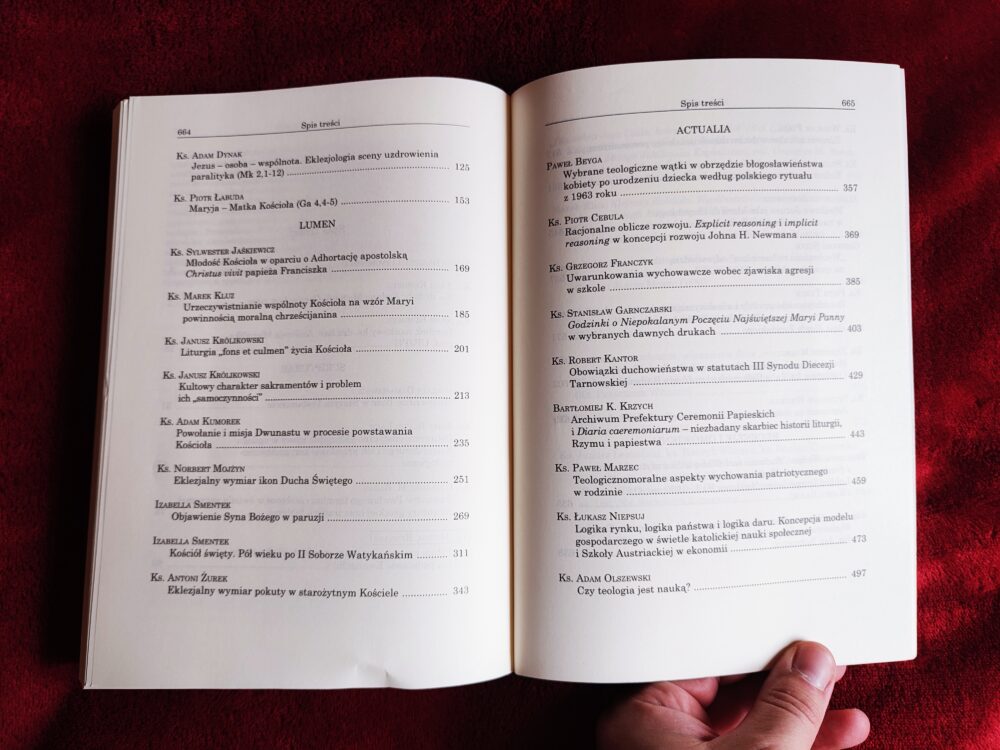 664
Spis treści
Ks. Adam Dynak
Jezus – osoba – wspólnota. Eklezjologia sceny uzdrowienia
paralityka (Mk 2,1-12) ........ 125
Ks. Piotr Łabuda
Maryja – Matka Kościoła (Ga 4,4-5) ........ 153
LUMEN
Ks. Sylwester Jaśkiewicz
Młodość Kościoła w oparciu o Adhortację apostolską
Christus vivit papieża Franciszka ........ 169
Ks. Marek Kluz
Urzeczywistnianie wspólnoty Kościoła na wzór Maryi
powinnością moralną chrześcijanina ........ 185
Ks. Janusz Królikowski
Liturgia „fons et culmen” życia Kościoła ........ 201
Ks. Janusz Królikowski
Kultowy charakter sakramentów i problem
ich „samoczynności” ........ 213
Ks. Adam Kumorek
Powołanie i misja Dwunastu w procesie powstawania
Kościoła ........ 235
Ks. Norbert Mojżyn
Eklezjalny wymiar ikon Ducha Świętego ........ 251
Izabella Smentek
Objawienie Syna Bożego w paruzji ........ 269
Izabella Smentek
Kościół święty. Pół wieku po II Soborze Watykańskim ........ 311
Ks. Antoni Żurek
Eklezjalny wymiar pokuty w starożytnym Kościele ........ 343
Spis treści
665
ACTUALIA
Paweł Beyga
Wybrane teologiczne wątki w obrzędzie błogosławieństwa
kobiety po urodzeniu dziecka według polskiego rytuału
z 1963 roku ........ 357
Ks. Piotr Cebula
Racjonalne oblicze rozwoju. Explicit reasoning i implicit
reasoning w koncepcji rozwoju Johna H. Newmana ........ 369
Ks. Grzegorz Franczyk
Uwarunkowania wychowawcze wobec zjawiska agresji
w szkole ........ 385
Ks. Stanisław Garnczarski
Godzinki o Niepokalanym Poczęciu Najświętszej Maryi Panny
w wybranych dawnych drukach ........ 403
Ks. Robert Kantor
Obowiązki duchowieństwa w statutach III Synodu Diecezji
Tarnowskiej ........ 429
Bartłomiej K. Krzych
Archiwum Prefektury Ceremonii Papieskich
i Diaria caeremoniarum – niezbadany skarbiec historii liturgii,
Rzymu i papiestwa ........ 443
Ks. Paweł Marzec
Teologicznomoralne aspekty wychowania patriotycznego
w rodzinie ........ 459
Ks. Łukasz Niepsuj
Logika rynku, logika państwa i logika daru. Koncepcja modelu
gospodarczego w świetle katolickiej nauki społecznej
i Szkoły Austriackiej w ekonomii ........ 473
Ks. Adam Olszewski
Czy teologia jest nauką? ........ 497